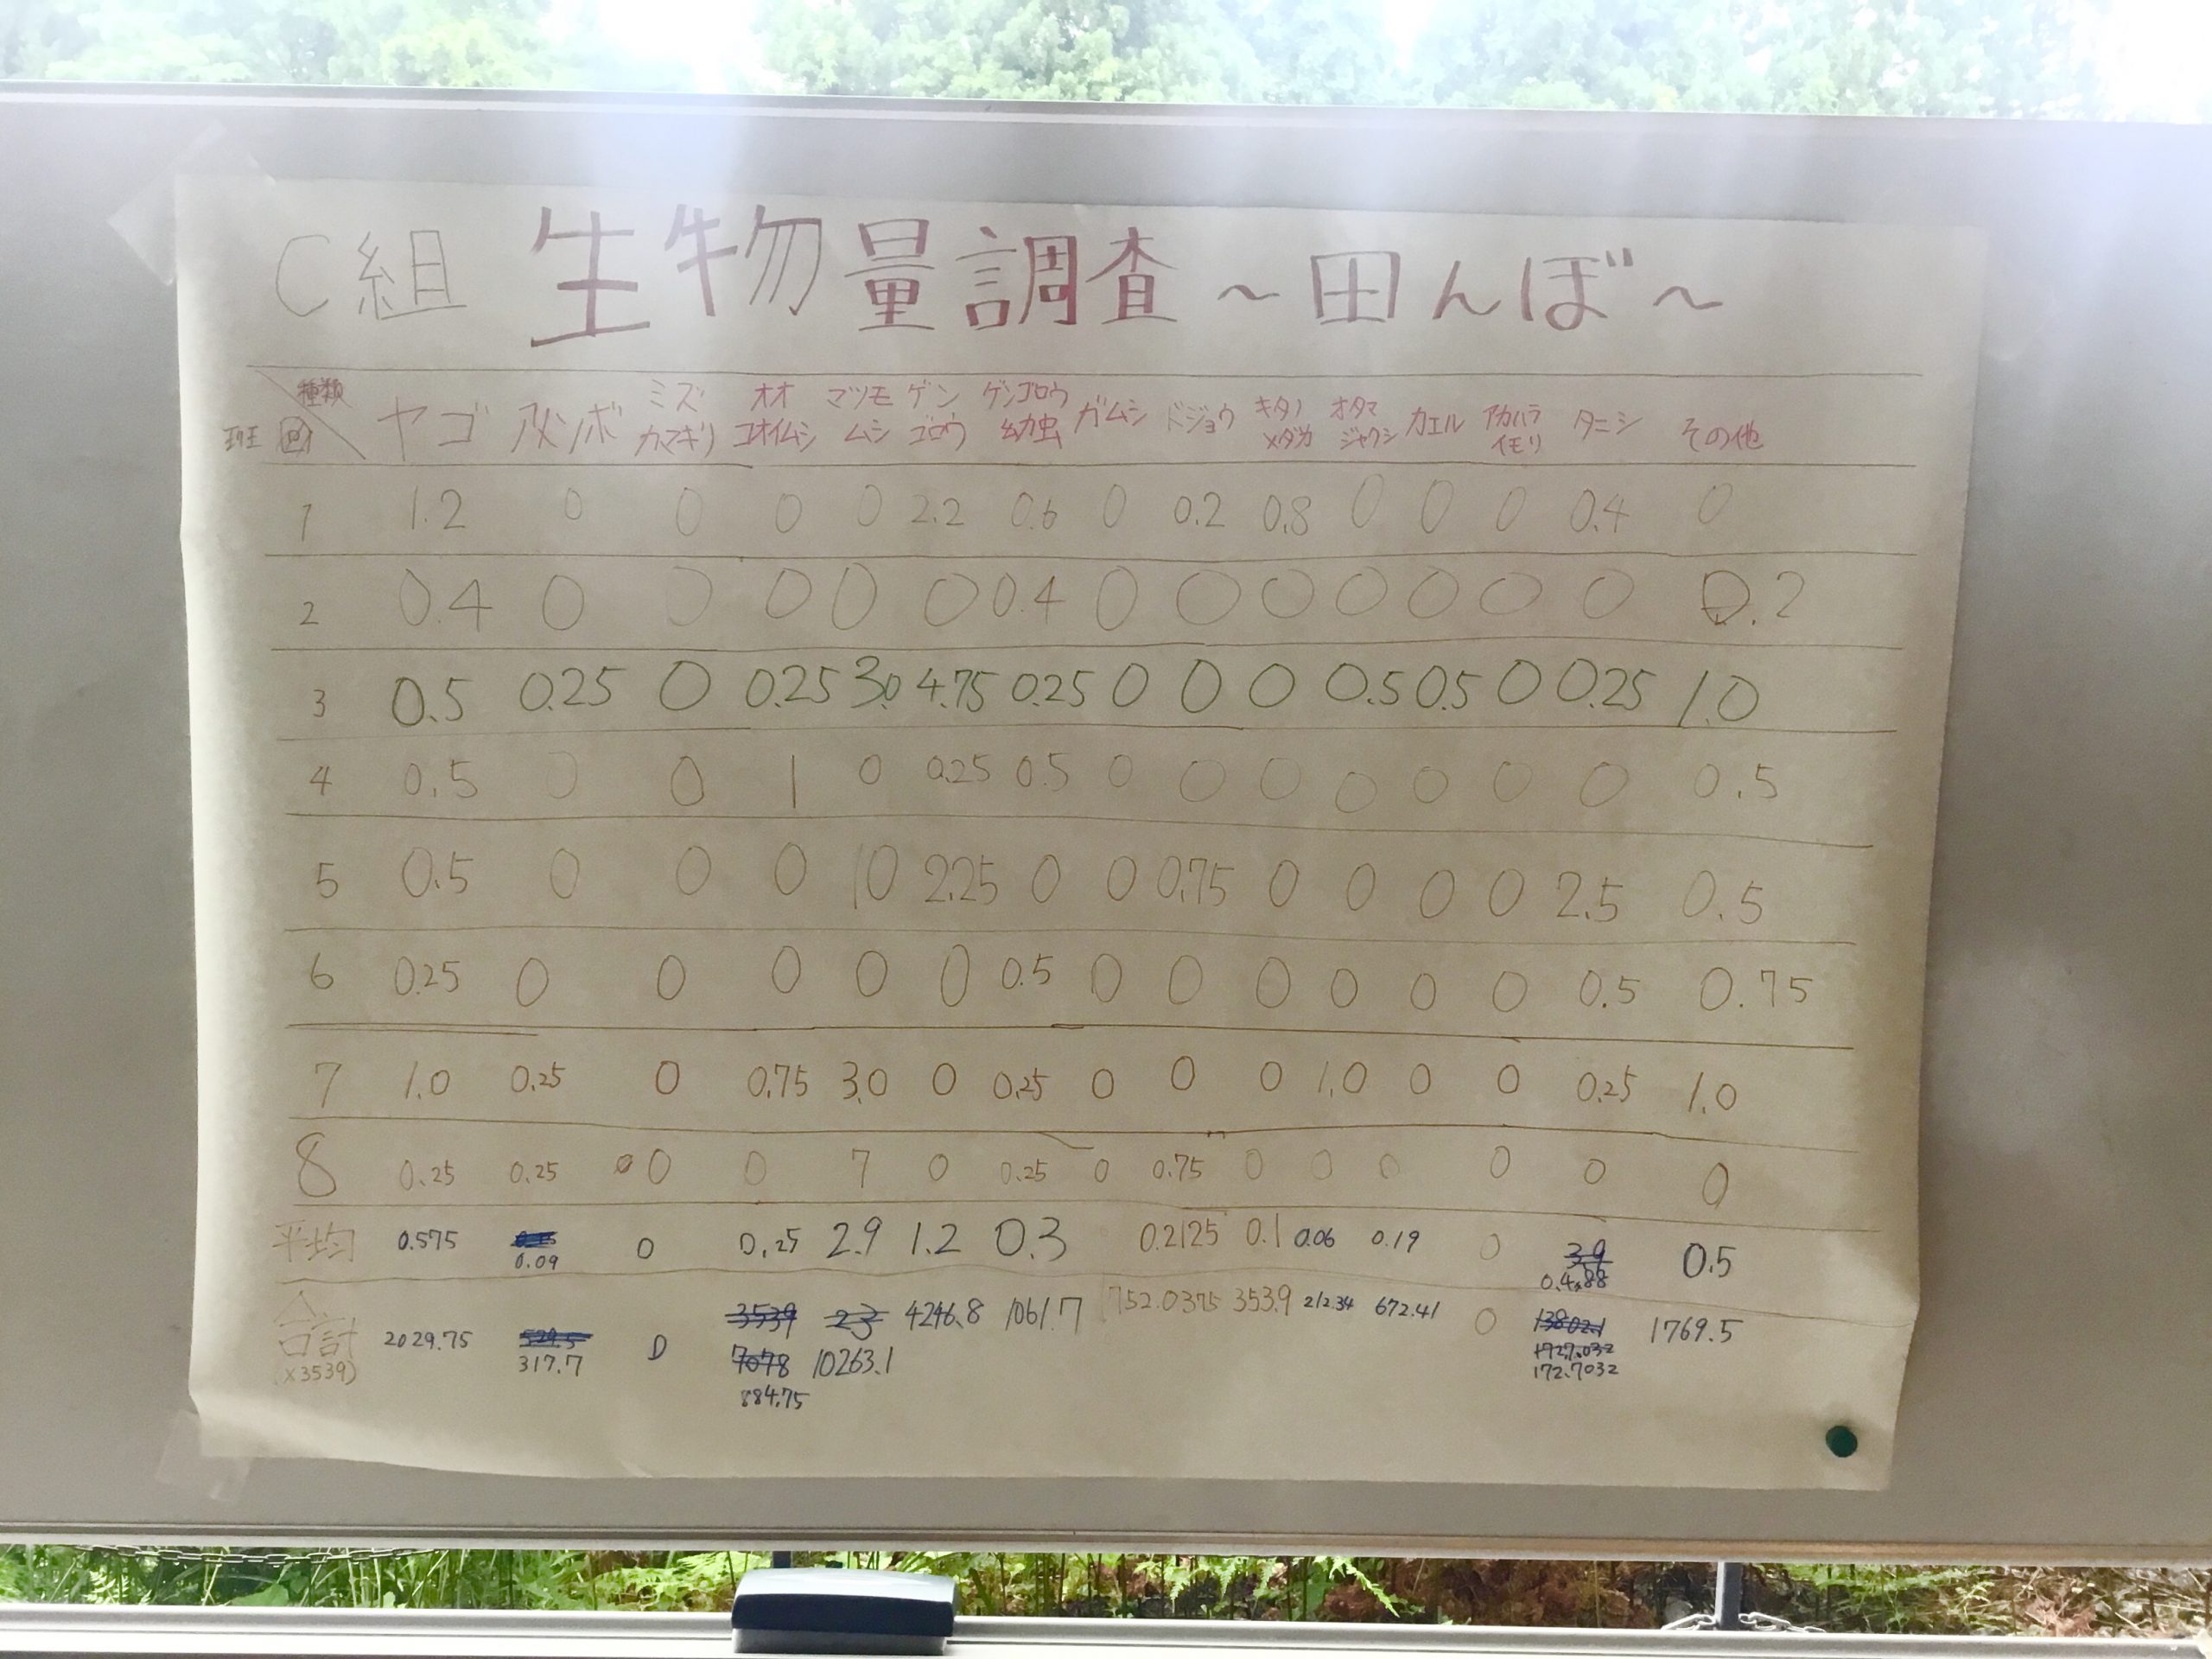 C組 生物量調査 ～田んぼ～
種類 ヤゴ アメンボ ミズカマキリ オオコオイムシ マツモムシ ゲンゴロウ ゲンゴロウ幼虫 ガムシ ドジョウ キタノメダカ オタマジャクシ カエル アカハライモリ タニシ その他
班 回
1 1.2 0 0 0 0 2.2 0.6 0 0.2 0.8 0 0 0 0.4 0
2 0.4 0 0 0 0 0 0.4 0 0 0 0 0 0 0 0.2
3 0.5 0.25 0 0.25 3.0 4.75 0.25 0 0 0 0.5 0.5 0 0.25 1.0
4 0.5 0 0 1 0 0.25 0.5 0 0 0 0 0 0 0 0.5
5 0.5 0 0 0 10 2.25 0 0 0.75 0 0 0 0 2.5 0.5
6 0.25 0 0 0 0 0 0.5 0 0 0 0 0 0 0.5 0.75
7 1.0 0.25 0 0.75 3.0 0 0.25 0 0 0 1.0 0 0 0.25 1.0
8 0.25 0.25 0 0 7 0 0.25 0 0.75 0 0 0 0 0 0
平均 0.575 0.09 0 0.25 2.9 1.2 0.3 0.2125 0.1 0.06 0.19 0 0.5
合計 2029.75 317.7 0 3539 23 4246.8 1061.7 752.0375 353.9 212.34 672.41 0 13802.1 1769.5
(×3539) 7078 10263.1 1727.032
884.75 172.7032